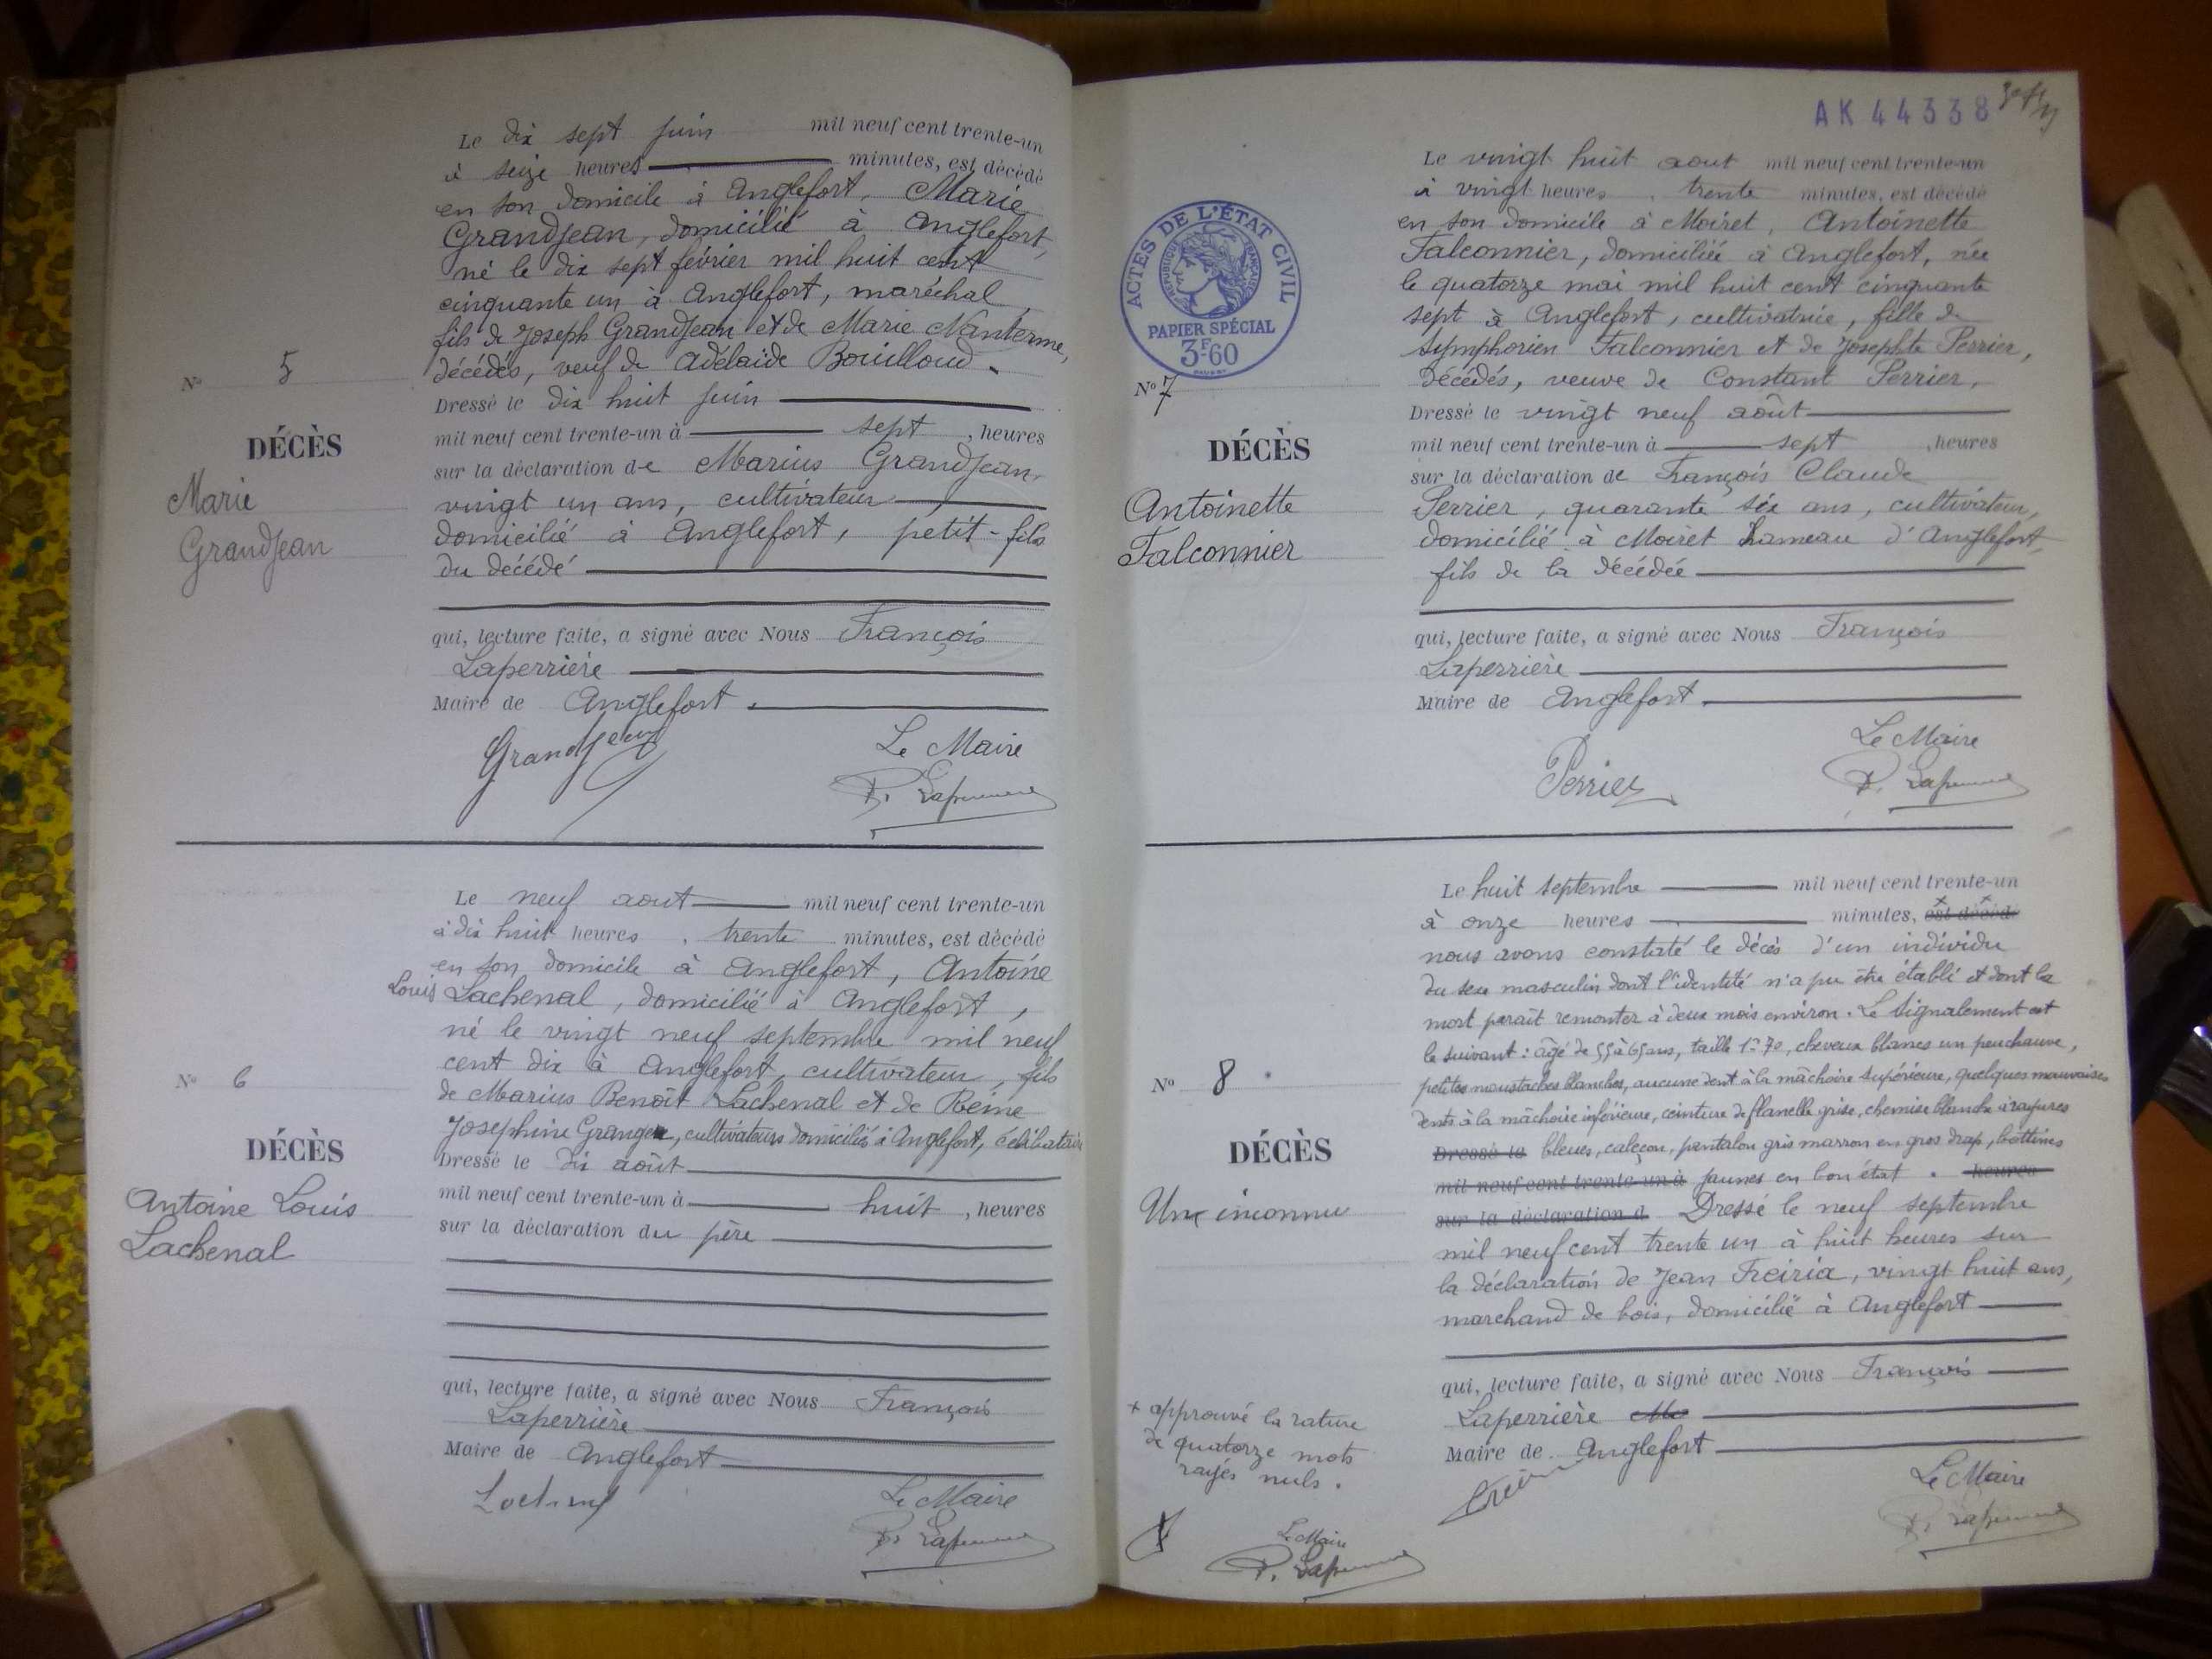 Le dix sept juin mil neuf cent trente-un
à seize heures minutes, est décédé
en son domicile à Anglefort, Marie
Grandjean, domicilié à Anglefort,
né le dix sept février mil huit cent
cinquante un à Anglefort, maréchal,
fils de Joseph Grandjean et de Marie Nanterme,
décédés, veuf de Adélaïde Bouilloud.
Nº 5
DÉCÈS
Marie
Grandjean
Dressé le dix huit juin
mil neuf cent trente-un à sept, heures
sur la déclaration de Marius Grandjean,
vingt un ans, cultivateur
domicilié à Anglefort, petit-fils
du décédé
qui, lecture faite, a signé avec Nous François
Laperrière
Maire de Anglefort.
Grandjean
Le Maire
F. Laperrière
Le neuf aout mil neuf cent trente-un
à dix huit heures, trente minutes, est décédé
en son domicile à Anglefort, Antoine
Louis Lachenal, domicilié à Anglefort,
né le vingt neuf septembre mil neuf
cent dix à Anglefort, cultivateur, fils
de Marius Benoît Lachenal et de Reine
Josephine Granger, cultivateurs domiciliés à Anglefort, célibataire
Nº 6
DÉCÈS
Antoine Louis
Lachenal
Dressé le dix août
mil neuf cent trente-un à huit, heures
sur la déclaration du père
qui, lecture faite, a signé avec Nous François
Laperrière
Maire de Anglefort
Lachenal
Le Maire
F. Laperrière
AK 44338
ACTES DE L'ÉTAT CIVIL
RÉPUBLIQUE FRANÇAISE
PAPIER SPÉCIAL
3F60
Le vingt huit aout mil neuf cent trente-un
à vingt heures, trente minutes, est décédé
en son domicile à Moiret, Antoinette
Falconnier, domiciliée à Anglefort, née
le quatorze mai mil huit cent cinquante
sept à Anglefort, cultivatrice, fille de
Symphorien Falconnier et de Josephte Perrier,
décédés, veuve de Constant Perrier.
Nº 7
DÉCÈS
Antoinette
Falconnier
Dressé le vingt neuf août
mil neuf cent trente-un à sept, heures
sur la déclaration de François Claude
Perrier, quarante six ans, cultivateur,
domicilié à Moiret hameau d'Anglefort,
fils de la décédée
qui, lecture faite, a signé avec Nous François
Laperrière
Maire de Anglefort.
Perrier
Le Maire
F. Laperrière
Le huit septembre mil neuf cent trente-un
à onze heures minutes, est décédé
nous avons constaté le décès d'un individu
du sexe masculin dont l'identité n'a pu être établi et dont la
mort paraît remonter à deux mois environ. Le signalement est
le suivant : âgé de 55 à 65 ans, taille 1m70, cheveux blancs un peu chauve,
petites moustaches blanches, aucune dent à la mâchoire supérieure, quelques mauvaises
dents à la mâchoire inférieure, ceinture de flanelle grise, chemise blanche à rayures
Dressé le bleues, caleçon, pantalon gris marron en gros drap, bottines
mil neuf cent trente-un à jaunes en bon état. heures
sur la déclaration d Dressé le neuf septembre
mil neuf cent trente un à huit heures sur
la déclaration de Jean Freiria, vingt huit ans,
marchand de bois, domicilié à Anglefort
Nº 8
DÉCÈS
Un inconnu
qui, lecture faite, a signé avec Nous François
Laperrière
Maire de Anglefort
Le Maire
F. Laperrière
+ approuvé la rature
de quatorze mots
rayés nuls.
Le Maire
F. Laperrière